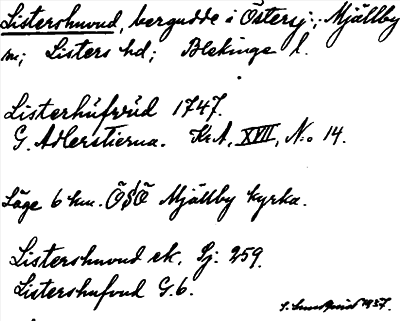 Listershuvud, bergudde i Östersj:, Mjällby
sn; Listers hd; Blekinge l.
Listerhúfwúd 1747.
G. Adlerstierna. KrA, XVII, N:o 14.
Läge 6 km. ÖSÖ Mjällby kyrka.
Listershuvud ek. Sj. 259.
Listershufvud G.b.
1937.